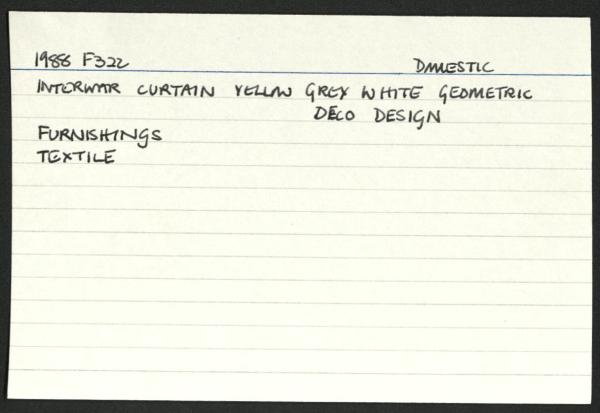 1988 F322 DOMESTIC
INTERWAR CURTAIN YELLOW GREY WHITE GEOMETRIC
DECO DESIGN
FURNISHINGS
TEXTILE